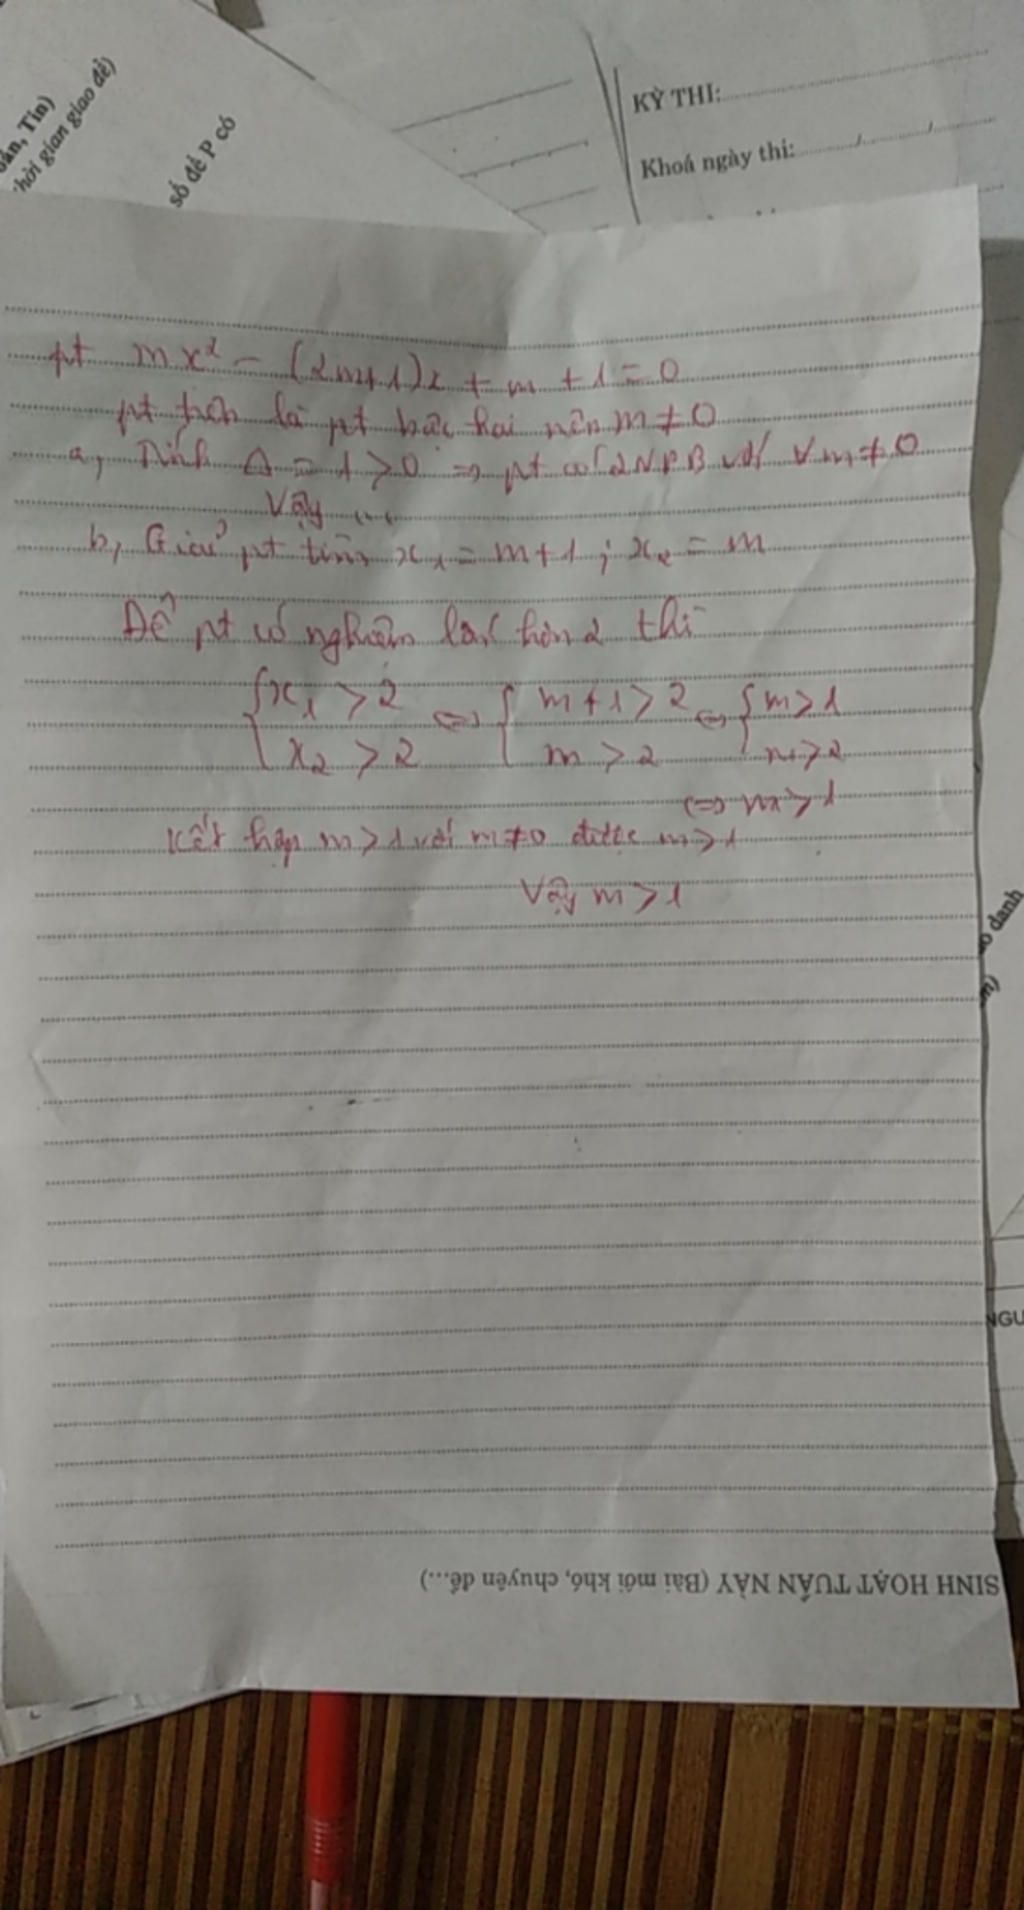 oán, Tin)
hời gian giao đề)
số đề P có
KỲ THI:
Khoá ngày thi: / /
pt mx² - (2m+1)x + m + 1 = 0
pt trên là pt bậc hai nên m ≠ 0
a, Tính Δ = 1 > 0 => pt có 2 N P B với ∀ m ≠ 0
Vậy ...
b, Giải pt tìm x₁ = m+1 ; x₂ = m
Để pt có nghiệm lớn hơn 2 thì
{ x₁ > 2 <=> { m+1 > 2 <=> { m > 1
x₂ > 2 m > 2 m > 2
<=> m > 1
Kết hợp m > 1 với m ≠ 0 được m > 1
Vậy m > 1
o danh
m)
NGU
SINH HOẠT TUẦN NÀY (Bài mới khó, chuyên đề...)